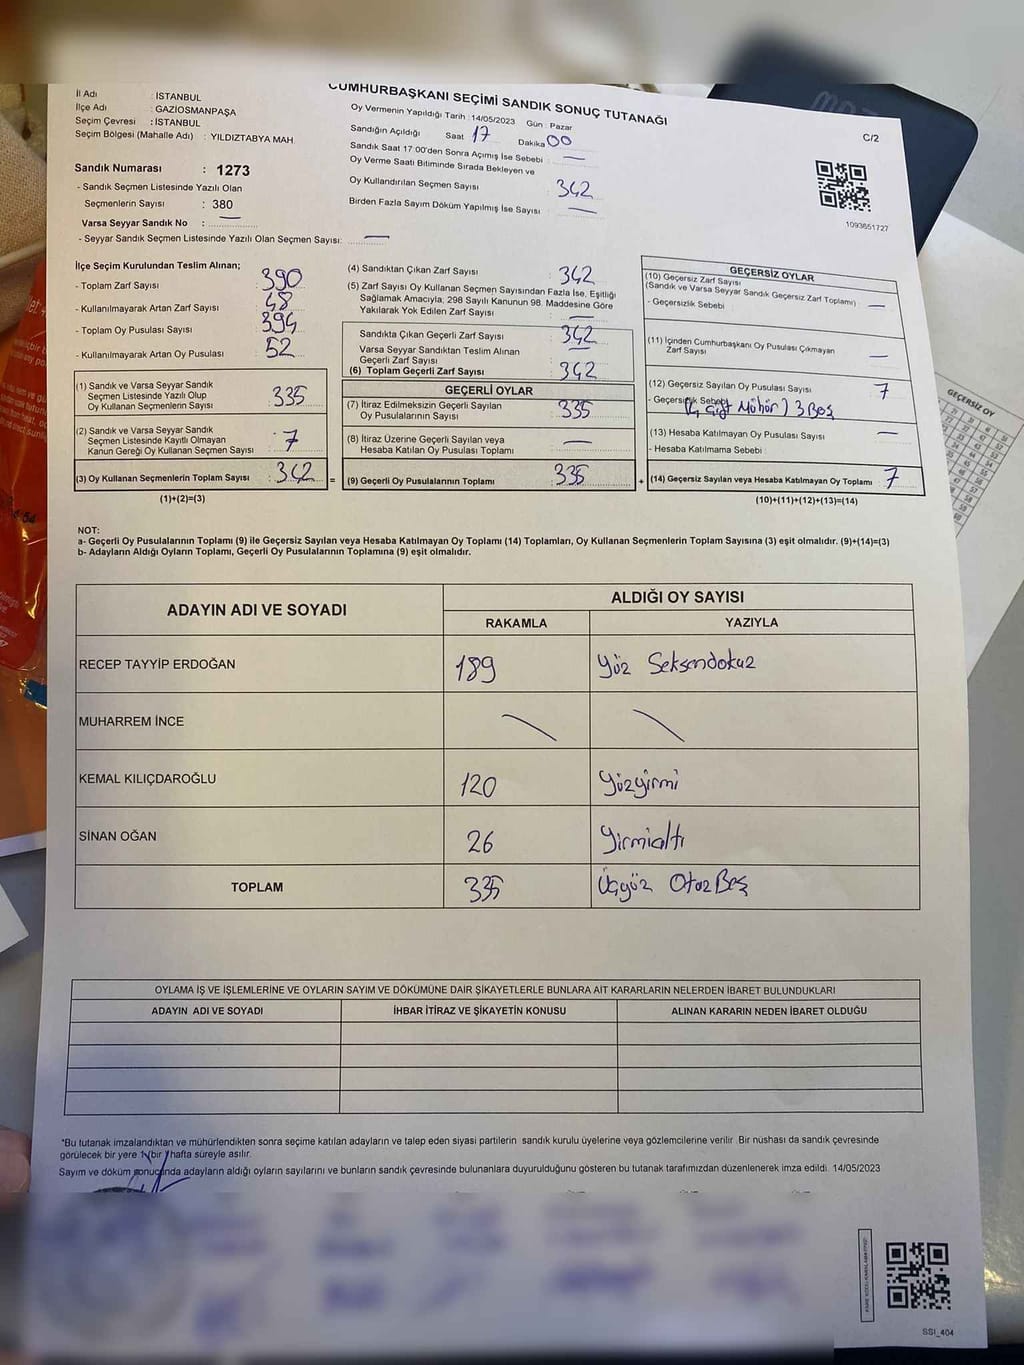 CUMHURBAŞKANI SEÇİMİ SANDIK SONUÇ TUTANAĞI
C/2
İl Adı : İSTANBUL
İlçe Adı : GAZİOSMANPAŞA
Seçim Çevresi : İSTANBUL
Seçim Bölgesi (Mahalle Adı) : YILDIZTABYA MAH
Sandık Numarası : 1273
- Sandık Seçmen Listesinde Yazılı Olan
Seçmenlerin Sayısı : 380
Varsa Seyyar Sandık No : —
- Seyyar Sandık Seçmen Listesinde Yazılı Olan Seçmen Sayısı: —
Oy Vermenin Yapıldığı Tarih : 14/05/2023 Gün : Pazar
Sandığın Açıldığı Saat 17 Dakika 00
Sandık Saat 17:00'den Sonra Açımış İse Sebebi : —
Oy Verme Saati Bitiminde Sırada Bekleyen ve
Oy Kullandırılan Seçmen Sayısı : 342
Birden Fazla Sayım Döküm Yapılmış İse Sayısı : —
1093651727
İlçe Seçim Kurulundan Teslim Alınan;
- Toplam Zarf Sayısı : 390
- Kullanılmayarak Artan Zarf Sayısı : 48
- Toplam Oy Pusulası Sayısı : 394
- Kullanılmayarak Artan Oy Pusulası : 52
(1) Sandık ve Varsa Seyyar Sandık
Seçmen Listesinde Yazılı Olup
Oy Kullanan Seçmenlerin Sayısı : 335
(2) Sandık ve Varsa Seyyar Sandık
Seçmen Listesinde Kayıtlı Olmayan
Kanun Gereği Oy Kullanan Seçmen Sayısı : 7
(3) Oy Kullanan Seçmenlerin Toplam Sayısı : 342
(1)+(2)=(3)
(4) Sandıktan Çıkan Zarf Sayısı : 342
(5) Zarf Sayısı Oy Kullanan Seçmen Sayısından Fazla İse, Eşitliği
Sağlamak Amacıyla; 298 Sayılı Kanunun 98. Maddesine Göre
Yakılarak Yok Edilen Zarf Sayısı : —
Sandıkta Çıkan Geçerli Zarf Sayısı : 342
Varsa Seyyar Sandıktan Teslim Alınan
Geçerli Zarf Sayısı : —
(6) Toplam Geçerli Zarf Sayısı : 342
GEÇERLİ OYLAR
(7) İtiraz Edilmeksizin Geçerli Sayılan
Oy Pusulalarının Sayısı : 335
(8) İtiraz Üzerine Geçerli Sayılan veya
Hesaba Katılan Oy Pusulası Toplamı : —
= (9) Geçerli Oy Pusulalarının Toplamı : 335
GEÇERSİZ OYLAR
(10) Geçersiz Zarf Sayısı
(Sandık ve Varsa Seyyar Sandık Geçersiz Zarf Toplamı) —
- Geçersizlik Sebebi :
(11) İçinden Cumhurbaşkanı Oy Pusulası Çıkmayan
Zarf Sayısı : —
(12) Geçersiz Sayılan Oy Pusulası Sayısı : 7
- Geçersizlik Sebebi : çift Mühür) 3 Boş
(13) Hesaba Katılmayan Oy Pusulası Sayısı : —
- Hesaba Katılmama Sebebi :
+ (14) Geçersiz Sayılan veya Hesaba Katılmayan Oy Toplamı : 7
(10)+(11)+(12)+(13)=(14)
GEÇERSİZ OY
NOT:
a- Geçerli Oy Pusulalarının Toplamı (9) ile Geçersiz Sayılan veya Hesaba Katılmayan Oy Toplamı (14) Toplamları, Oy Kullanan Seçmenlerin Toplam Sayısına (3) eşit olmalıdır. (9)+(14)=(3)
b- Adayların Aldığı Oyların Toplamı, Geçerli Oy Pusulalarının Toplamına (9) eşit olmalıdır.
ADAYIN ADI VE SOYADI
ALDIĞI OY SAYISI
RAKAMLA YAZIYLA
RECEP TAYYİP ERDOĞAN 189 Yüz Seksendokuz
MUHARREM İNCE
KEMAL KILIÇDAROĞLU 120 Yüzyirmi
SİNAN OĞAN 26 Yirmialtı
TOPLAM 335 Üçyüz OtuzBeş
OYLAMA İŞ VE İŞLEMLERİNE VE OYLARIN SAYIM VE DÖKÜMÜNE DAİR ŞİKAYETLERLE BUNLARA AİT KARARLARIN NELERDEN İBARET BULUNDUKLARI
ADAYIN ADI VE SOYADI İHBAR İTİRAZ VE ŞİKAYETİN KONUSU ALINAN KARARIN NEDEN İBARET OLDUĞU
*Bu tutanak imzalandıktan ve mühürlendikten sonra seçime katılan adayların ve talep eden siyasi partilerin sandık kurulu üyelerine veya gözlemcilerine verilir. Bir nüshası da sandık çevresinde
görülecek bir yere 1 (bir) hafta süreyle asılır.
Sayım ve döküm sonucunda adayların aldığı oyların sayılarını ve bunların sandık çevresinde bulunanlara duyurulduğunu gösteren bu tutanak tarafımızdan düzenlenerek imza edildi. 14/05/2023
SSI_404